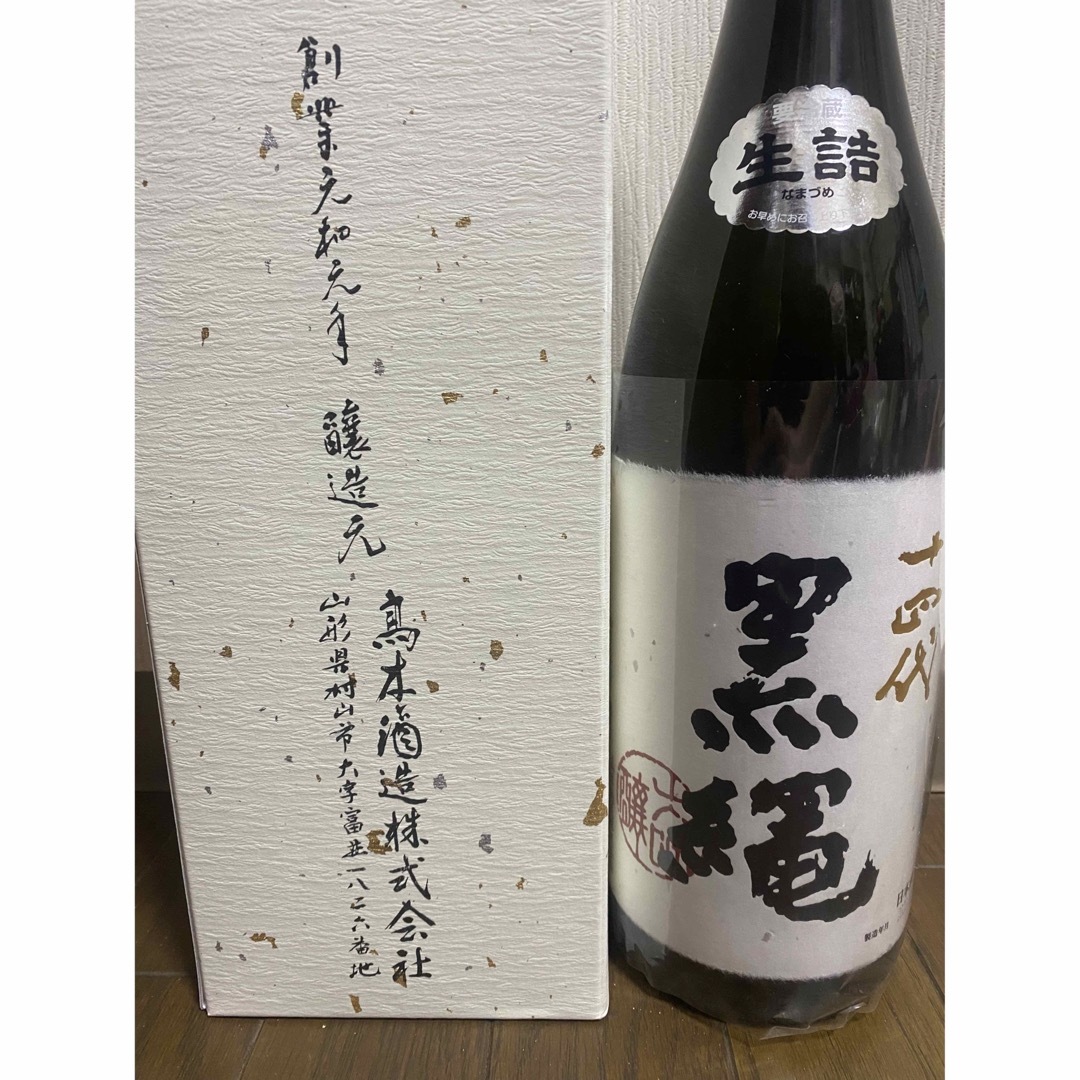 創業元和元年　醸造元
高木酒造株式会社
山形県村山市大字富並一八二六番地
蔵
生詰
なまづめ
お早めにお召
十四代
黒縄
製造年月